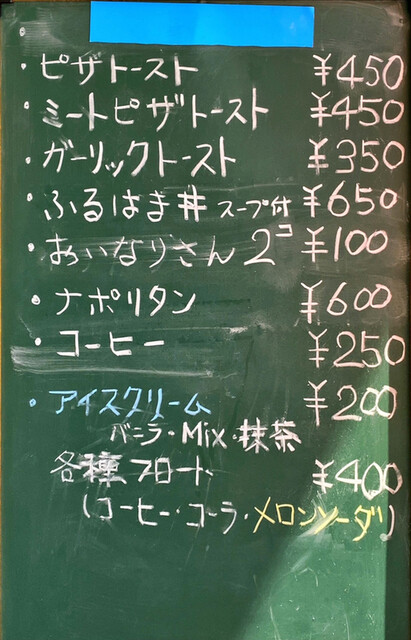 ・ピザトースト ¥450
・ミートピザトースト ¥450
・ガーリックトースト ¥350
・ふるはま丼 スープ付 ¥650
・おいなりさん 2コ ¥100
・ナポリタン ¥600
・コーヒー ¥250
・アイスクリーム ¥200
バニラ・Mix・抹茶
各種フロート ¥400
(コーヒー・コーラ・メロンソーダ)